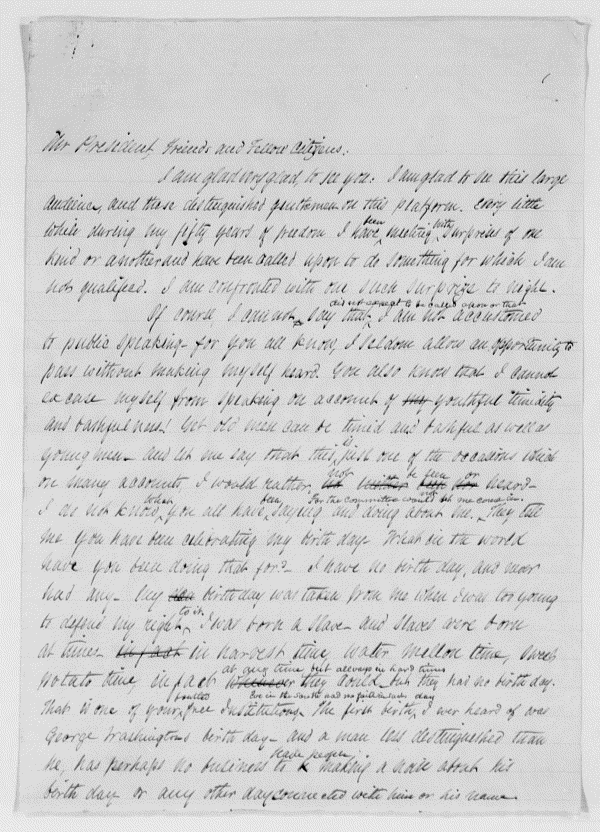 Mr President, Friends and Fellow Citizens:
I am glad very glad, to see you: I am glad to see this large
audience, and these distinguished gentlemen on this platform. Every little
been with
while during my fifty years of freedom I have meeting surprises of one
kind or another and have been called upon to do something for which I am
not qualified. I am confronted with one such surprize to night.
did not expect to be called upon or that
Of course, I am not say that, I am not accustomed
to public speaking - for you all know, I seldom allow an opportunity to
pass without making myself heard. You also know that I cannot
excuse myself from speaking on account of my youthful timidity
and bashfulness! Yet old men can be timid and bashful as well as
is
young men - and let me say that this, just one of the occasions which
not be seen or
on many accounts I would rather heard -
For the committee would not let me
what been
I do not know, you all have, saying and doing about me. They tell
me you have been celebrating my birth day. What in the world
have you been doing that for? - I have no birth day, and never
had any - My birthday was taken from me when I was too young
to it
to defend my right, I was born a slave - and slaves were born
at times - in fact in harvest time, water mellon time, sweet
at any time but allways in hard times
potato time, in fact whenever they could - but they had no birth day.
Eve in the South had no particular day
That is one of your, free Institutions. The first birth, I ever heard of was
George Washingtons birth day - and a man less distinguished than
have people
he, has perhaps no business to making a noise about his
birth day or any other day connected with him or his name